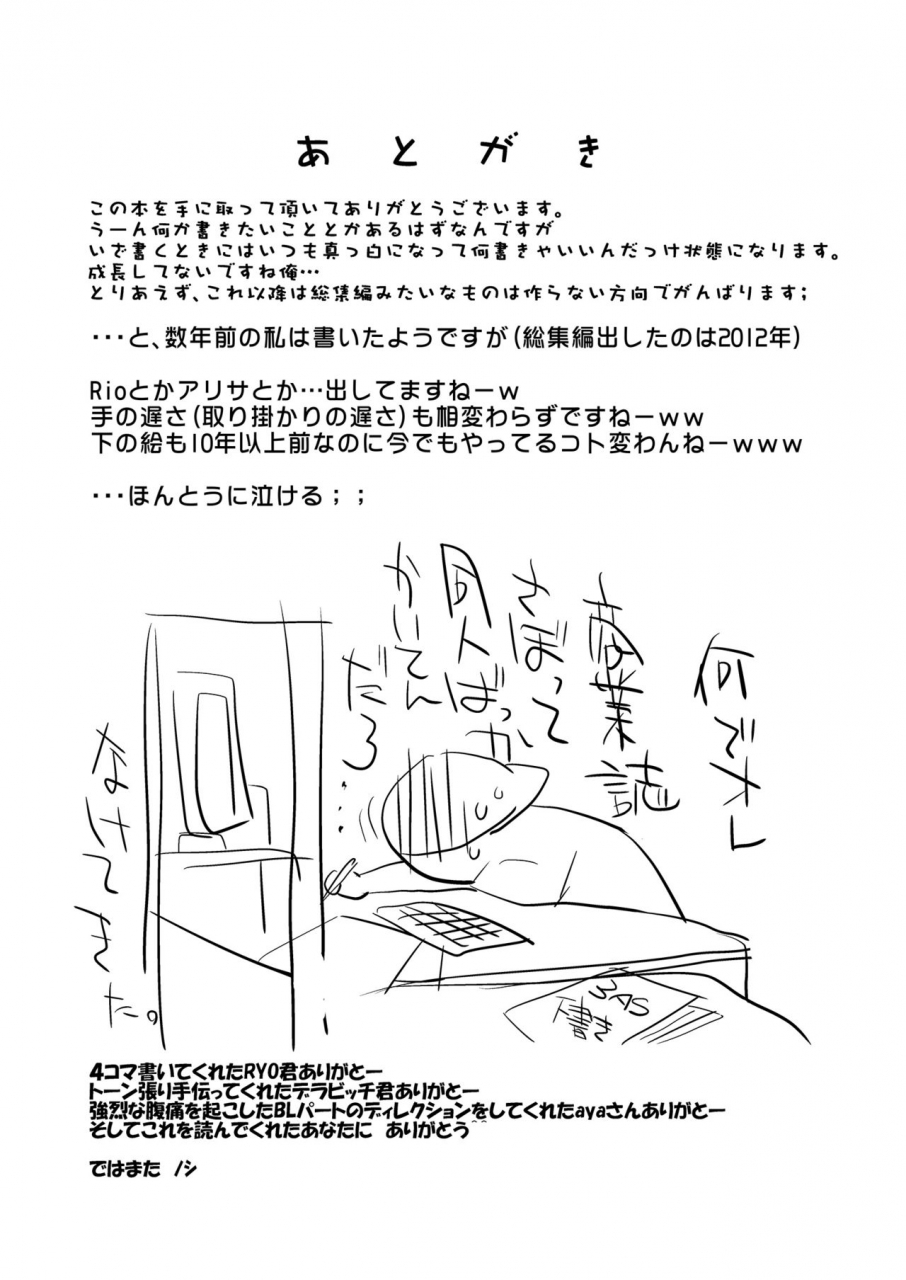 あとがき
この本を手に取って頂いてありがとうございます。
うーん何か書きたいこととかあるはずなんですが
いで書くときにはいつも真っ白になって何書きゃいいんだっけ状態になります。
成長してないですね俺…
とりあえず、これ以降は総集編みたいなものは作らない方向でがんばります；
･･･と、数年前の私は書いたようですが(総集編出したのは2012年)
Rioとかアリサとか…出してますねーｗ
手の遅さ(取り掛かりの遅さ)も相変わらずですねーｗｗ
下の絵も10年以上前なのに今でもやってるコト変わんねーｗｗｗ
･･･ほんとうに泣ける；；
何でオレ
商業誌
さぼって
同人ばっか
かいてん
だろ…
なけてきた。
3AS
下書き
4コマ書いてくれたRYO君ありがとー
トーン張り手伝ってくれたデラビッチ君ありがとー
強烈な腹痛を起こしたBLパートのディレクションをしてくれたayaさんありがとー
そしてこれを読んでくれたあなたに ありがとう^^
ではまた ﾉｼ